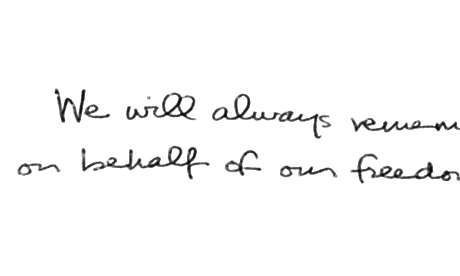 We will always remem
on behalf of our freedo